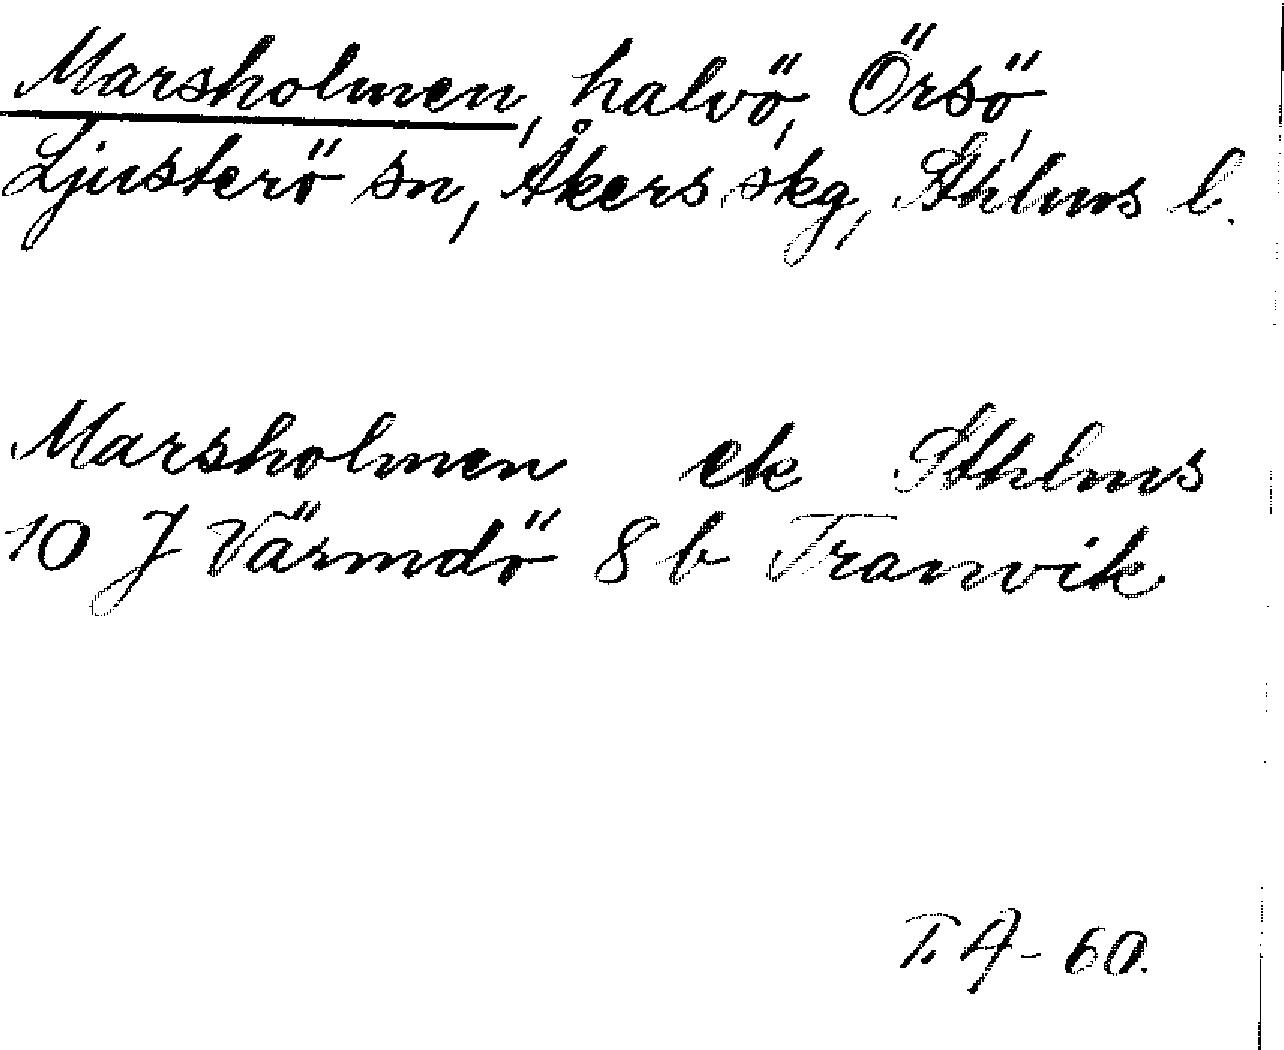 Marsholmen, halvö, Örsö,
Ljusterö sn, Åkers skg, Sthlms l.
Marsholmen ek Sthlms
10 J Värmdö 8 b Tranvik
T. A - 60.